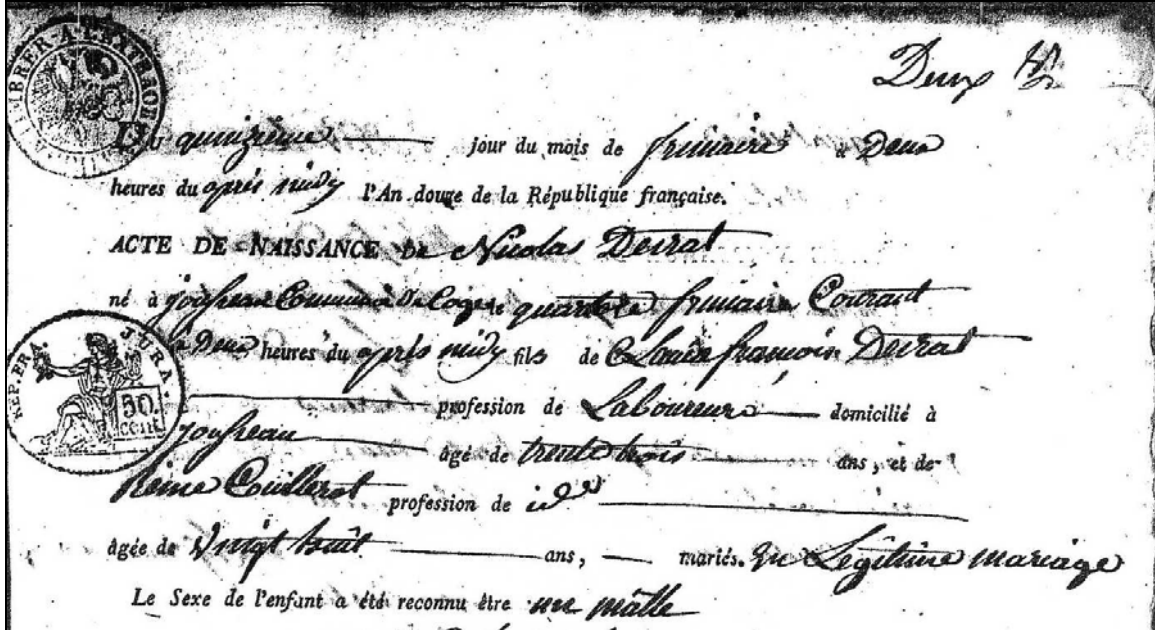 Deux
Du quinzieme jour du mois de frimaire à Deux
heures du après midy l'An douze de la République française.
ACTE DE NAISSANCE De Nicolas Deirat
né à joufseau Commune De Coges le quatorze frimaire Courant
à Deux heures du après midy fils de Claude françois Deirat
profession de Laboureur domicilié à
joufseau âgé de trente trois ans, et de
Reine Cuillerot profession de id
âgée de Vingt huit ans, mariés. En Legitime mariage
Le Sexe de l'enfant a été reconnu être un mâlle
TIMBRER A L'EXTRAOR
REP. FRA. JURA.
50.
cent.